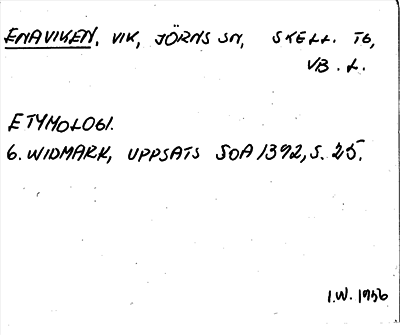 ENAVIKEN, VIK, JÖRNS SN, SKELL. TG,
VB. L.
ETYMOLOGI.
G. WIDMARK, UPPSATS SOA 1392, S. 25.
I.W. 1956